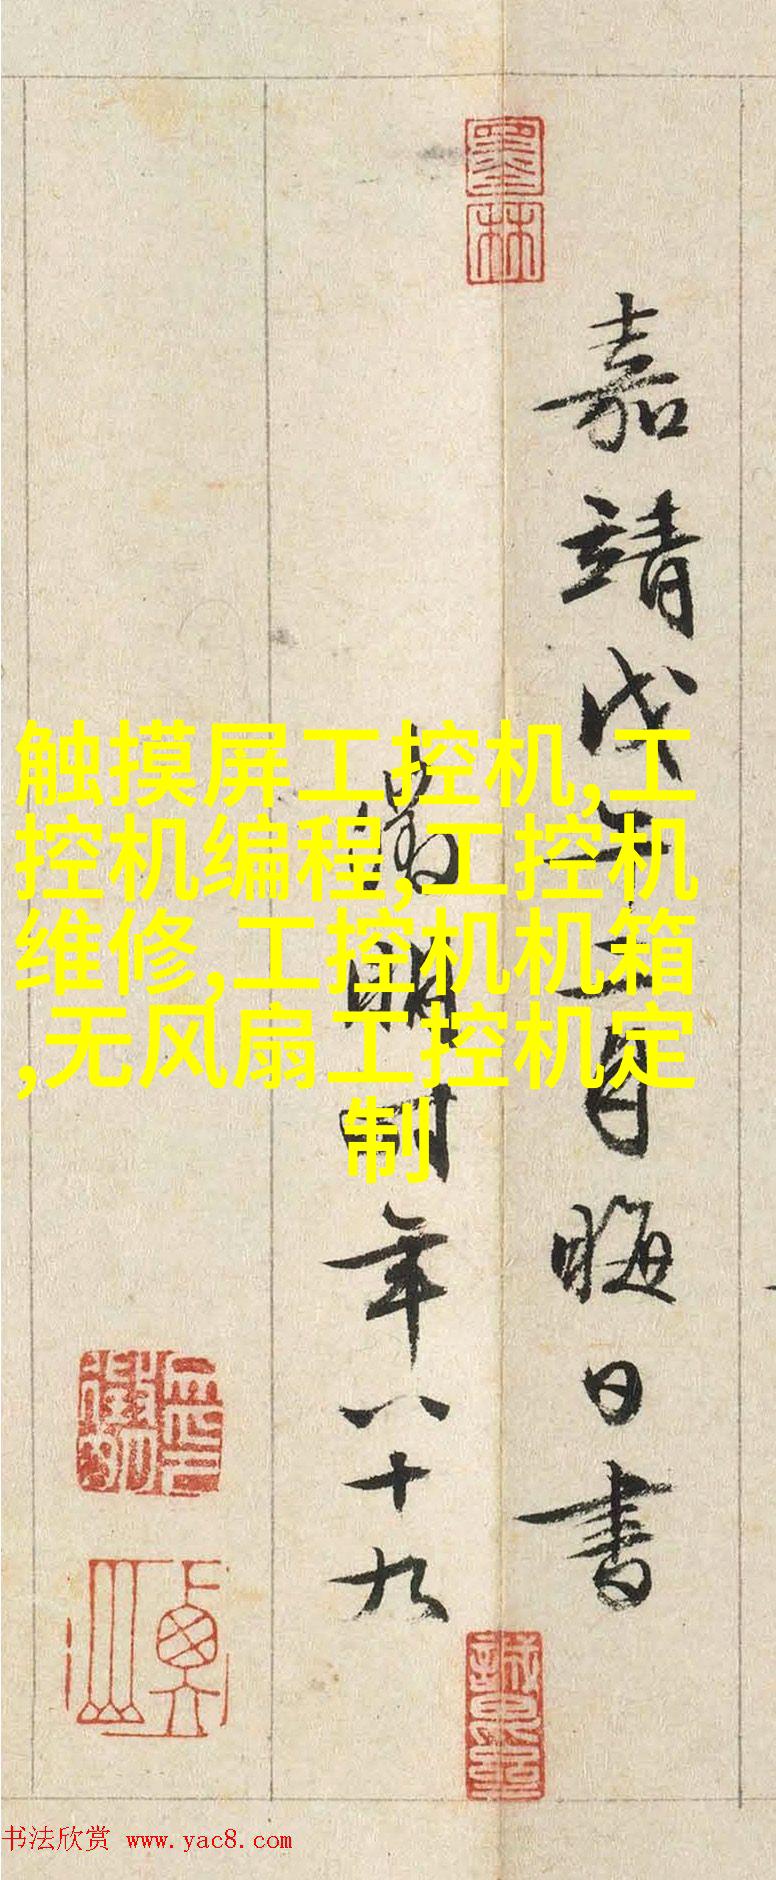 墨林
嘉靖戊午十二月晦日書
徵明時年八十九
触摸屏工控机,工
控机编程,工控机
维修,工控机机箱
,无风扇工控机定
制
衡山
书法欣赏 www.yac8.com